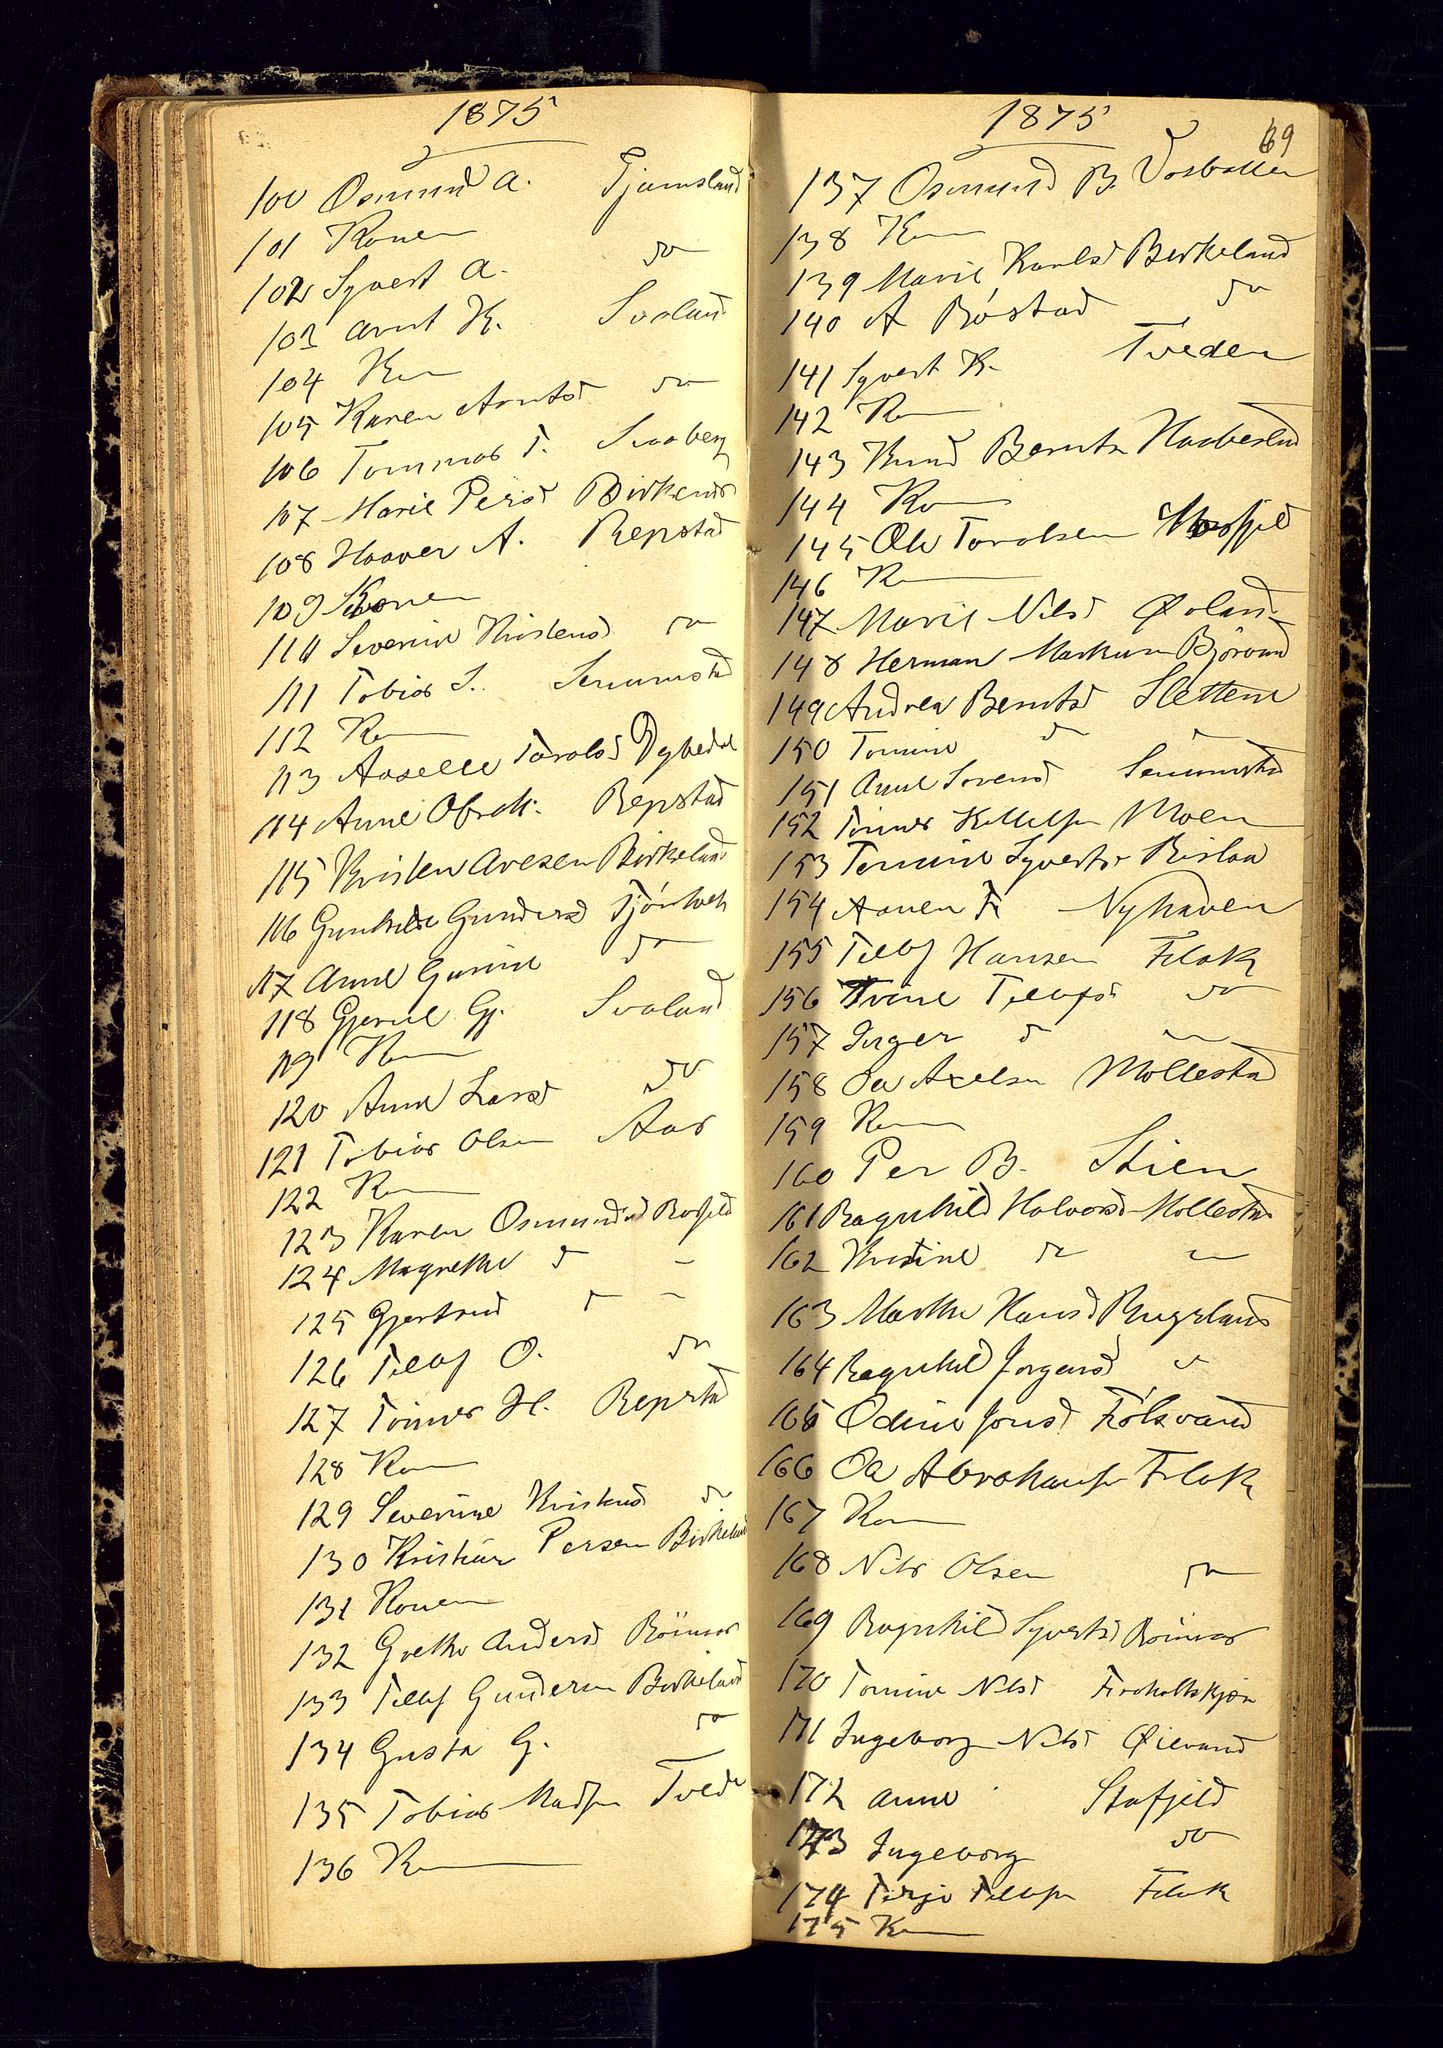 1875
100 Osmund A. Tjomsland
101 Konen
102 Syvert A. do
103 Arnt K. Svaland
104 Kon
105 Karen Arntsd do
106 Tommas T. Svaberg
107 Marie Persd Birkeland
108 Haaver A. Repstad
109 Konen
110 Severine Kristensd do
111 Tobias S. Senumstad
112 Kon
113 Aaselle Taralds Dybedal
114 Anne Olsdt. Repstad
115 Kristen Aresen Birkeland
116 Gunhilde Gundersd
117 Anne Gurine do
118 Gjerul Gj. Svaland
119 Kon
120 Anne Larsd do
121 Tobias Olsen Aas
122 Kon
123 Karen Osmundsd Rosfjeld
124 Magrethe d -
125 Gjertrud d -
126 Tellef O. do
127 Tomas H. Repstad
128 Kon
129 Severine Kristensd do
130 Kristian Persen Birkeland
131 Konen
132 Grethe Andersd Röinaas
133 Tellef Gundersen Birkeland
134 Gusta G. do
135 Tobias Madsen Tvede
136 Kon
1875 69
137 Osmund B. Vasbakken
138 Kon
139 Marie Karlsd Birkeland
140 A Röstad do
141 Syvert K. Tveden
142 Kon
143 Knud Berntsen Haabesland
144 Kon
145 Ole Taralsen
146 Kon
147 Marie Nilsd Øvland
148 Herman Markusen Björvand
149 Andrea Berntsd Slettene
150 Tomine d -
151 Anne Sörensd Senumstad
152 Tomas Kittelsen Moen
153 Tomine Syvertsd Rislaa
154 Aanen F. Nyhaven
155 Tellef Hansen Flak
156 Trine Tellefsd do
157 Inger d -
158 Ola Axelsen Mollestad
159 Kon
160 Per B. Stien
161 Ragnhild Halvorsd Mollestad
162 Kristine do -
163 Marthe Hansd Rugsland
164 Ragnhild Jörgensd -
165 Odine Jensd Fölsvand
166 Ole Abrahamsen Flak
167 Kon
168 Nils Olsen do
169 Ragnhild Syvertsd Röinaas
170 Tomine Nilsd
171 Ingeborg Nilsd Øievand
172 Anne Stafjeld
173 Ingeborg do
174 Terje Tellefsen Flak
175 Kon